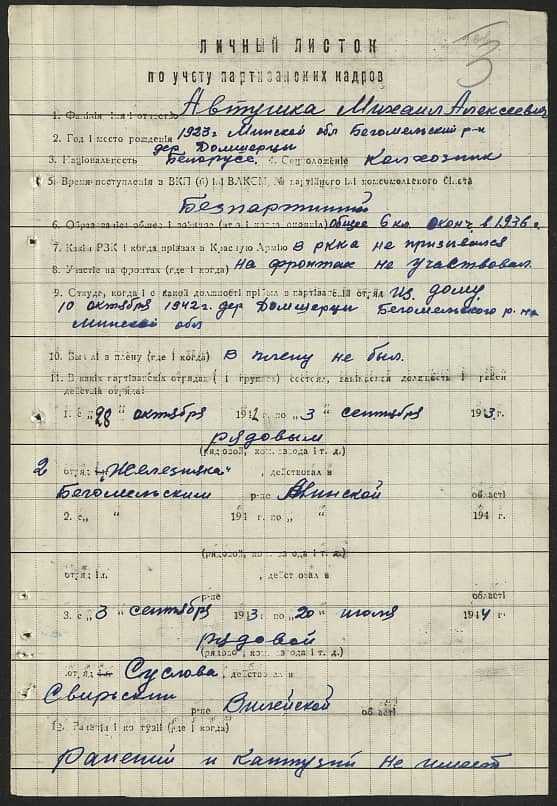 3
ЛИЧНЫЙ ЛИСТОК
по учету партизанских кадров
1. Фамилия имя и отчество Автушка Михаил Алексеевич
2. Год і место рождения 1923г Минской обл Бегомельский р-н
дер Домшерци
3. Национальность Белорусс. 4. Соцположение Колхозник
5. Время поступления в ВКП (б) і ВЛКСМ, № партійного і комсомольского білета
Безпартийний
6. Образование общее і военное (что і когда окончіл) общее 6 кл. оконч. в 1936 г.
7. Какім РВК і когда прізван в Красную Армію в РККА не призивался
8. Участіе на фронтах (где і когда) на фронтах не участвовал.
9. Откуда, когда і с какой должності прібыл в партізанскій отряд из дому.
10 октября 1942г. дер Домшерци Бегомельского р-на
Минской обл
10. Был лі в плену (где і когда) в плену не был.
11. В какіх партізанскіх отрядах ( і группах) состоял, занімаемая должность і район
действія отряда:
1. с „28" октября 1942 г. по „3" сентября 1943 г.
рядовым
(рядовой, ком. взвода і т. д.)
2 отряд „Железняка", действовал в
Бегомельским р-не Минской області
2. с „ " 194 г. по „ " 194 г.
(рядовой, ком. взвода і т. д.)
отряд ім. , действовал в
р-не області
3. с „3" сентября 1943 г. по „20" июля 1944 г.
рядовой
(рядовой, ком. взвода і т. д.)
отряд ім. Суслова, действовал в
Свирьским р-не Вилейской області
12. Раненія і контузіі (где і когда)
Ранений и Кантузий не имеет